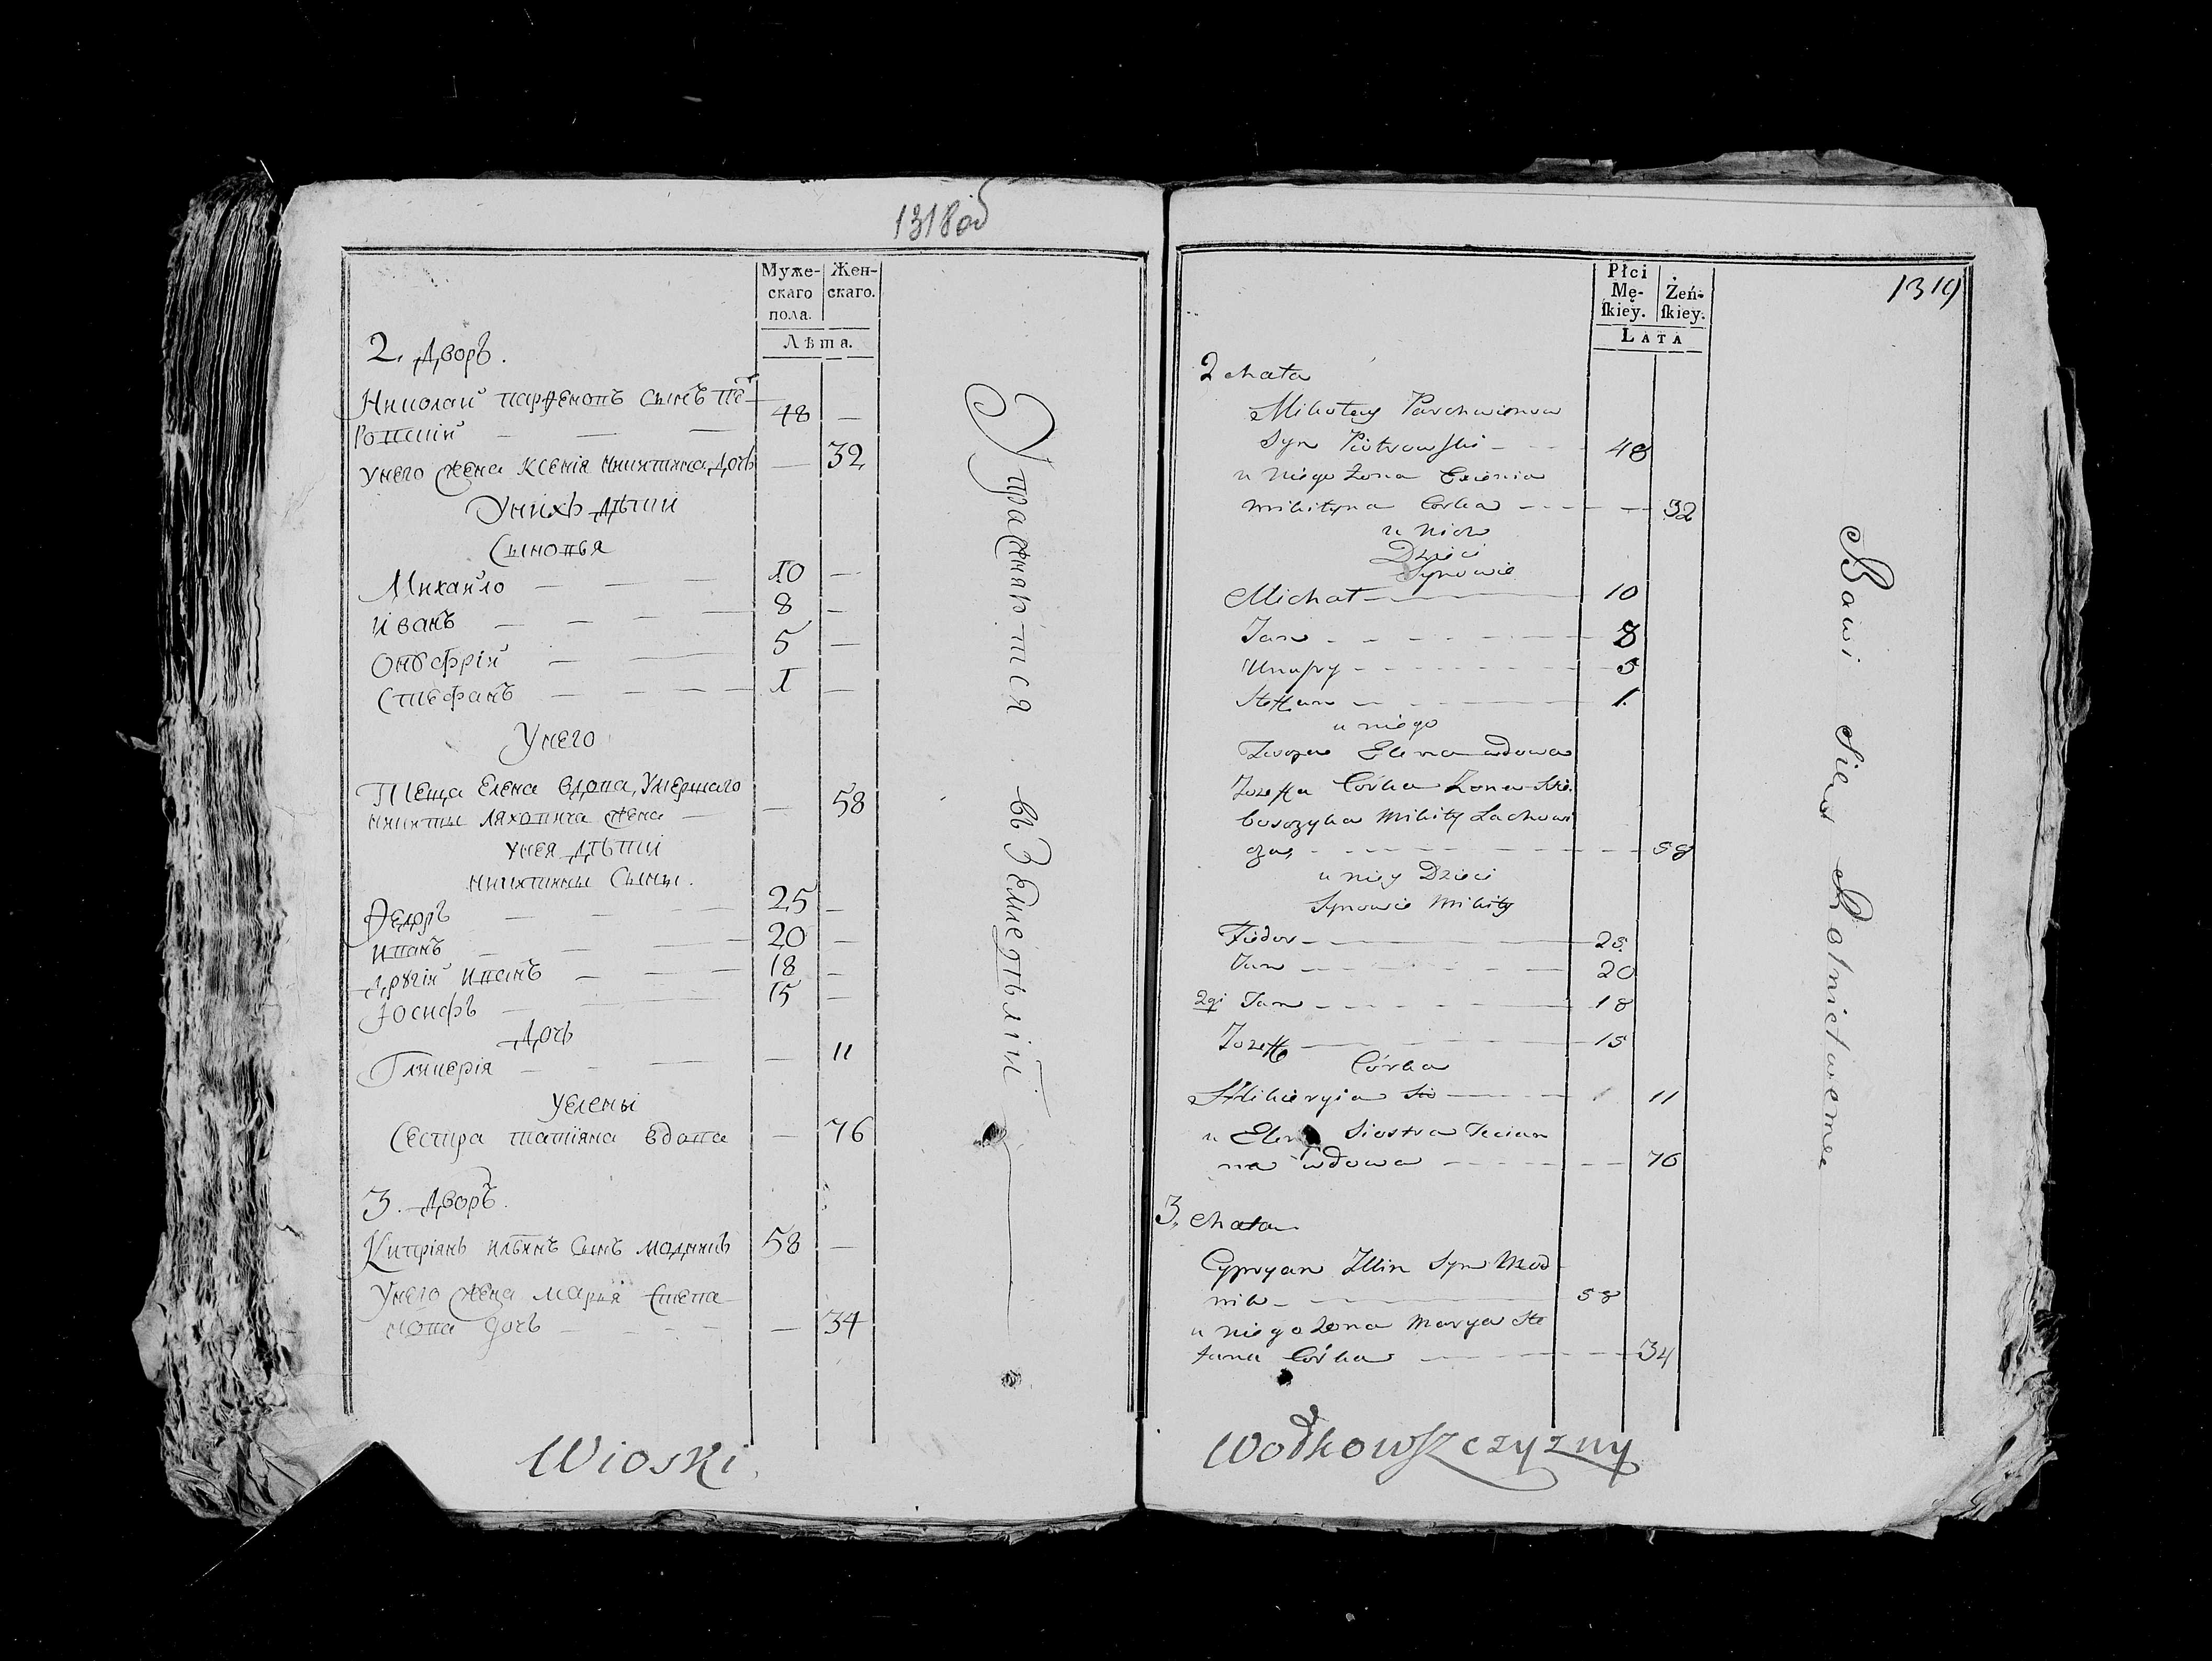 1318 об
Муже-
скаго
пола.
Жен-
скаго.
Лѣта.
2. Дворъ.
Николай Парѳеновъ сынъ Пе-
ровский — 48 —
У него жена Ксенія Никитина дочь — 32
У нихъ дѣти
Сыновья
Михайло — 10 —
Иванъ — 8 —
Онуфрій — 5 —
Стефанъ — 1 —
У него
Теща Елена вдова, умершаго
Никиты Ляховича жена — 58
У нея дѣти
Никитины сыны.
Ѳедоръ — 25 —
Иванъ — 20 —
другій Иванъ — 18 —
Іосифъ — 15 —
Дочь
Гликерія — 11
У Елены
Сестра Татіяна вдова — 76
3. Дворъ.
Кипріянъ Ильинъ сынъ Модникъ 58 —
У него жена Марья Степа-
нова дочь — 34
Упражняются въ Земледѣліи
Wioski
1319
Płci
Mę-
ſkiey.
Żeń-
ſkiey.
LATA
2 chata
Mikołay Parchwienow
Syn Piotrowski - - - 48
u niego żona Xienia
Mikityna Corka - - - 32
u nich
Dzieci
Synowie
Michał - 10
Jan - - - 8
Unufry - - - 5
Steffan - - - 1.
u niego
Elena wdowa
Jozeffa Córka Żona Nie-
boszczyka Mikity Lachowi
cza, - - - 58
u niey Dzieci
Synowie Mikity
Fiedor - 25.
Jan - - - 20
2gi Jan - - - 18
Jozeff - - - 15
Córka
Hlikieryia - - - 11
u Eleny Siostra Tecian
na wdowa - - - 76
3. chata
Cypryan Illin Syn Mod-
nik - 58
u niego żona Marya Ste
fana Córka - - - 34
Bawi Sie Rolnictwem
Wodkowszczyzny